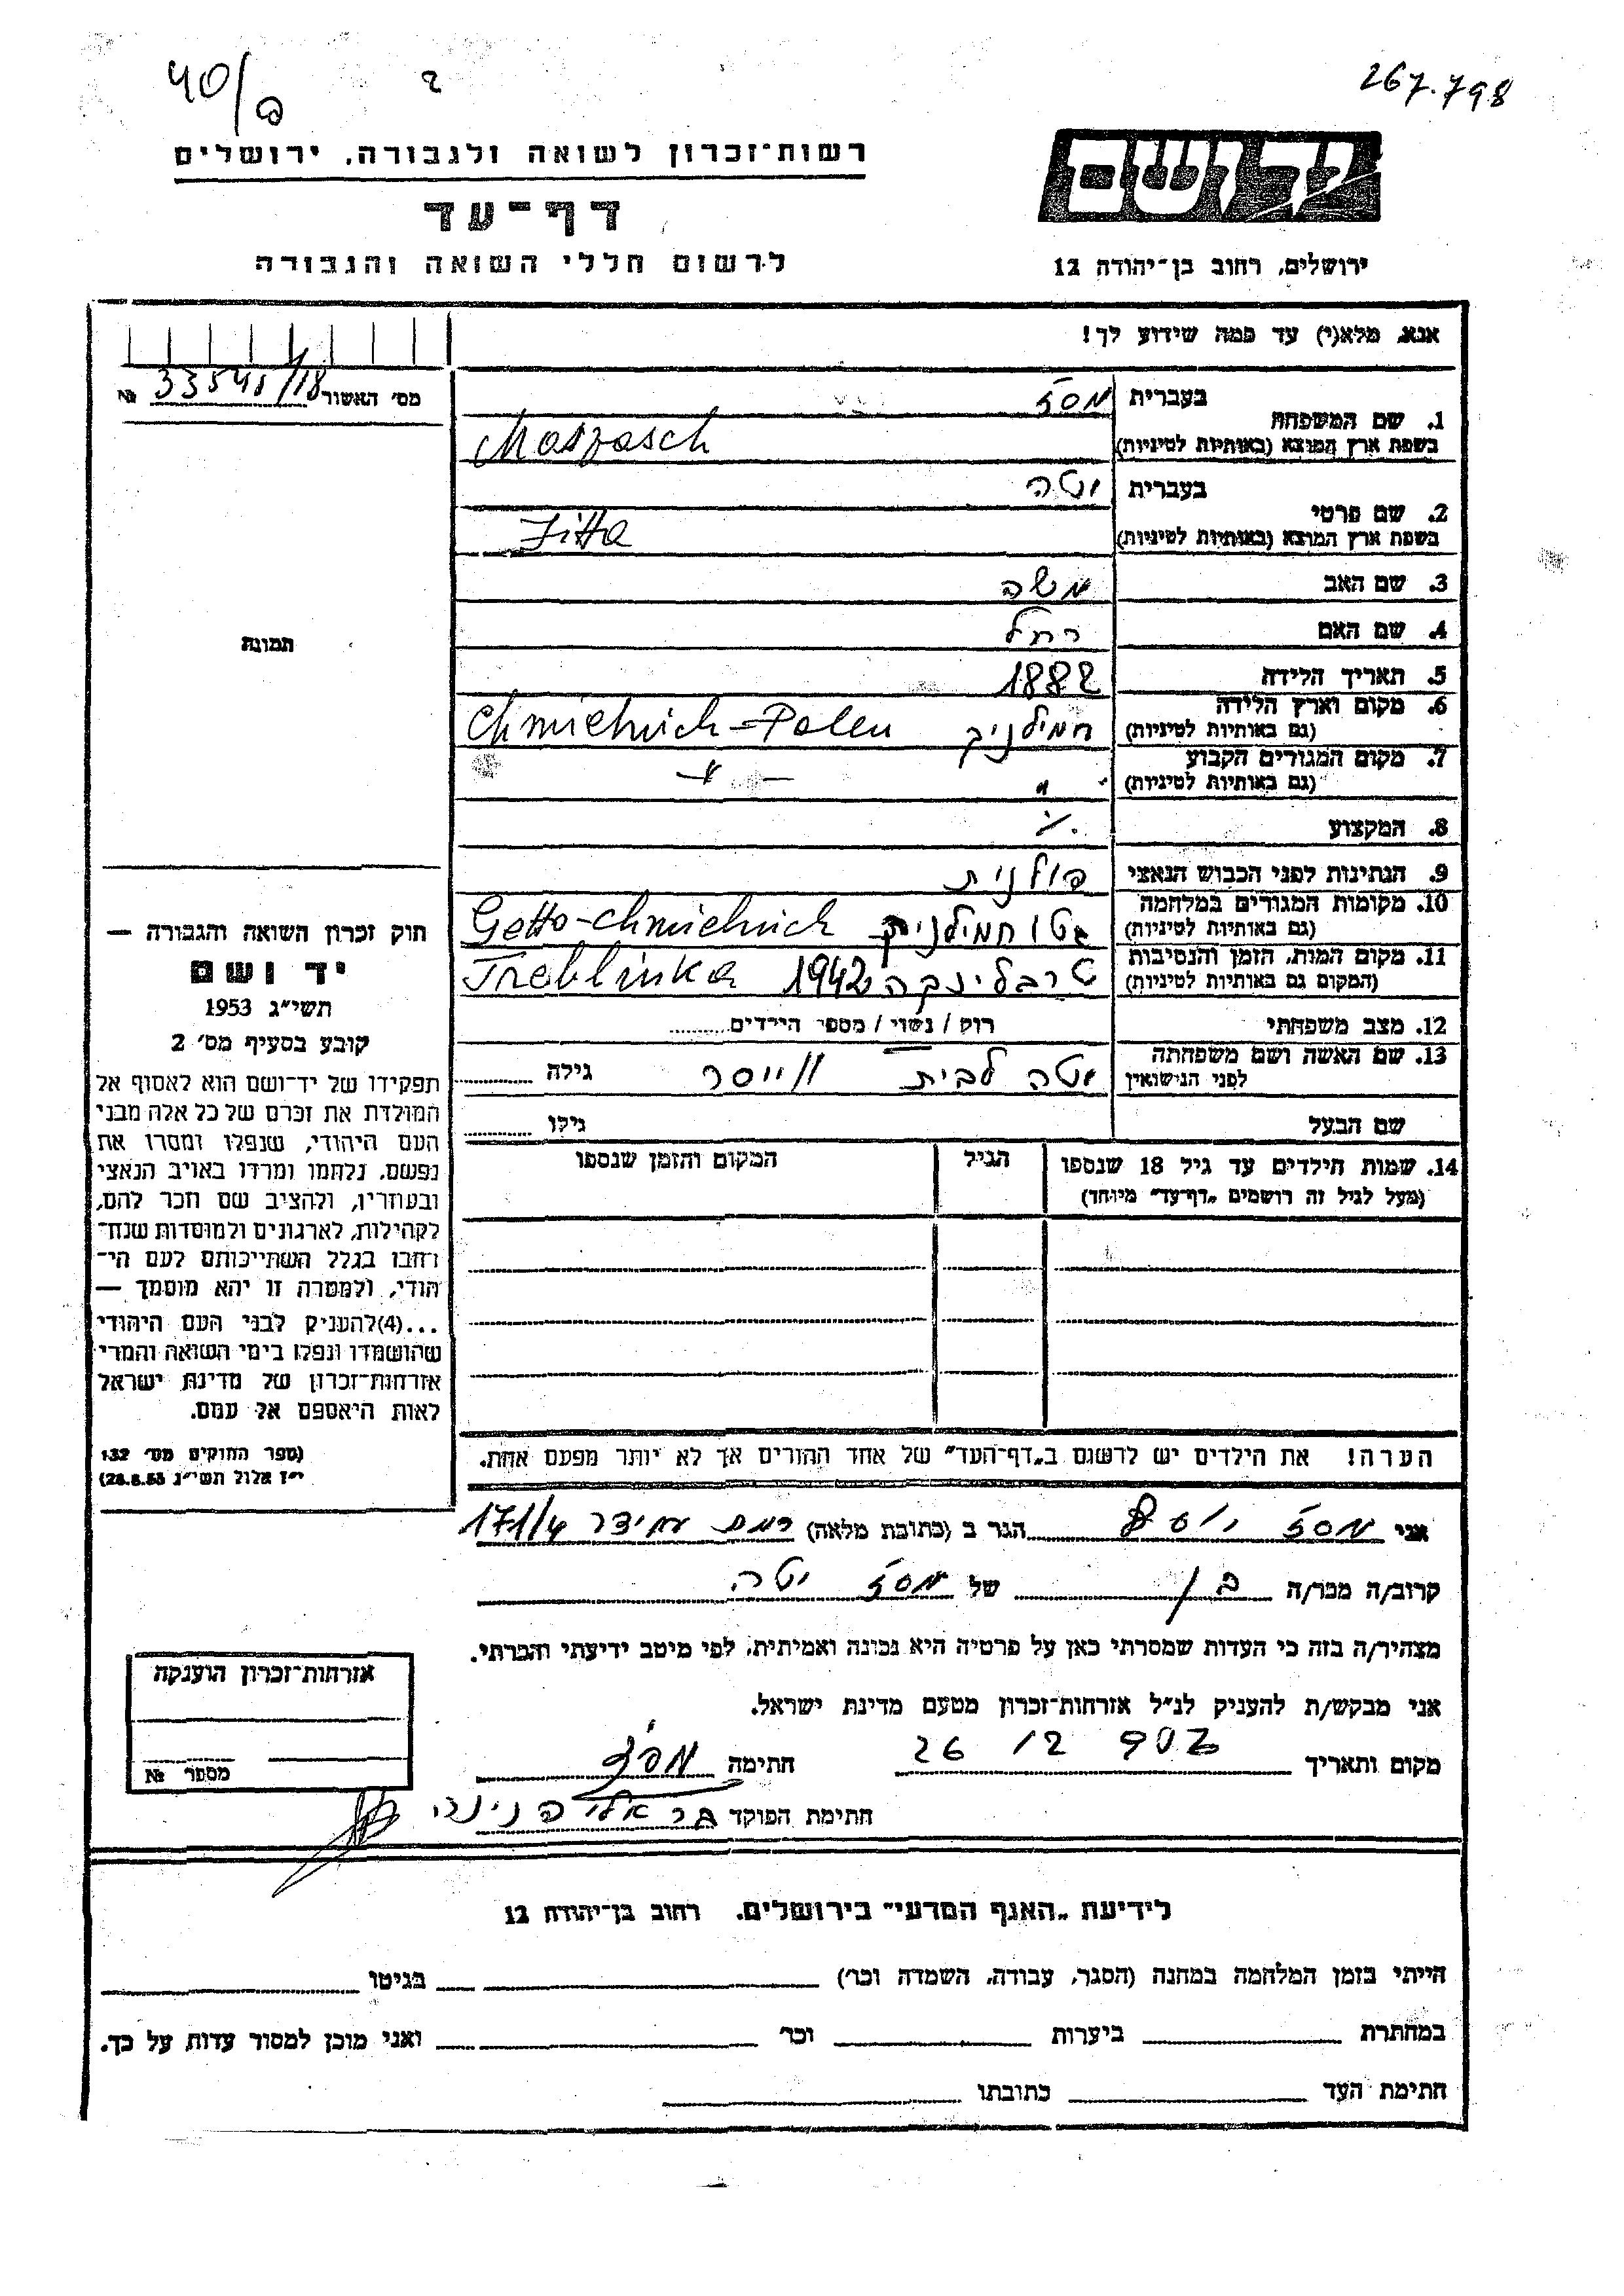 40/ס
267.798
רשות־זכרון לשואה ולגבורה, ירושלים
יד ושם
דף־עד
לרשום חללי השואה והגבורה
ירושלים, רחוב בן־יהודה 12
אנא, מלא(י) עד כמה שידוע לך!
מס׳ האשור 33541/18 №
1. שם המשפחה
בעברית
Maszasch
בשפת ארץ המוצא (באותיות לטיניות)
בעברית יטה
2. שם פרטי
בשפת ארץ המוצא (באותיות לטיניות) Jitta
3. שם האב משה
4. שם האם רחל
5. תאריך הלידה 1882
6. מקום וארץ הלידה
(גם באותיות לטיניות) חמילניק Chmielnick-Polen
7. מקום המגורים הקבוע
(גם באותיות לטיניות) " — " —
8. המקצוע
9. הנתינות לפני הכבוש הנאצי פולנית
10. מקומות המגורים במלחמה
(גם באותיות לטיניות) גטו חמילניק Getto-Chmielnick
11. מקום המות, הזמן והנסיבות
(המקום גם באותיות לטיניות) טרבלינקה 1942 Treblinka
12. מצב משפחתי רוק / נשוי / מספר הילדים
13. שם האשה ושם משפחתה
לפני הנישואין יטה לבית ווייסר גילה
שם הבעל גילו
14. שמות הילדים עד גיל 18 שנספו הגיל המקום והזמן שנספו
(מעל לגיל זה רושמים „דף־עד״ מיוחד)
הערה! את הילדים יש לרשום ב„דף־העד״ של אחד ההורים אך לא יותר מפעם אחת.
תמונה
חוק זכרון השואה והגבורה —
יד ושם
תשי״ג 1953
קובע בסעיף מס׳ 2
תפקידו של יד־ושם הוא לאסוף אל
המולדת את זכרם של כל אלה מבני
העם היהודי, שנפלו ומסרו את
נפשם, נלחמו ומרדו באויב הנאצי
ובעוזריו, ולהציב שם וזכר להם,
לקהילות, לארגונים ולמוסדות שנח־
רבו בגלל השתייכותם לעם הי־
הודי, ולמטרה זו יהא מוסמך —
...(4)להעניק לבני העם היהודי
שהושמדו ונפלו בימי השואה והמרי
אזרחות־זכרון של מדינת ישראל
לאות היאספם אל עמם.
(ספר החוקים מס׳ 132
י״ז אלול תשי״ג 28.8.53)
אני יוסף הגר ב (כתובת מלאה) רמת עמידר 171/4
קרוב/ה מכר/ה בן של יטה
מצהיר/ה בזה כי העדות שמסרתי כאן על פרטיה היא נכונה ואמיתית, לפי מיטב ידיעתי והכרתי.
אני מבקש/ת להעניק לנ״ל אזרחות־זכרון מטעם מדינת ישראל.
מקום ותאריך 26 12 חתימה
חתימת הפוקד
אזרחות־זכרון הוענקה
מספר №
לידיעת „האגף המדעי״ בירושלים, רחוב בן־יהודה 12
הייתי בזמן המלחמה במחנה (הסגר, עבודה, השמדה וכו׳) בגיטו
במחתרת ביערות וכו׳ ואני מוכן למסור עדות על כך.
חתימת העד כתובתו